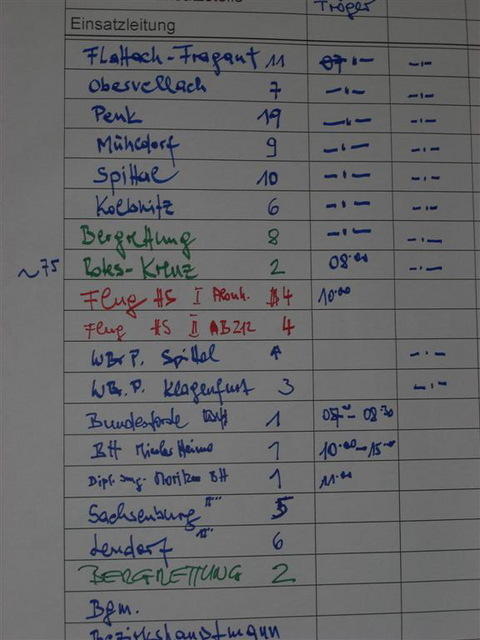 Träger
Einsatzleitung
Flattach-Fragant 11 07 -"- -"-
Obervellach 7 -"- -"-
Penk 19 -"- -"-
Mühldorf 9 -"- -"-
Spittal 10 -"- -"-
Kolbnitz 6 -"- -"-
Bergrettung 8 -"- -"-
~75 Rotes-Kreuz 2 08.00 -"-
Flug #5 I 4 10.00
Flug #5 II AB212 4
W.Br.P. Spittal 1 -"-
W.Br.P. Klagenfurt 3 -"-
Bundesforste 1 07 - 08.30
BH 1 10.00-15.00
Dipl. Ing. BH 1 11.00
Sachsenburg 5
Lendorf 6
BERGRETTUNG 2
Bgm.
Bezirkshauptmann